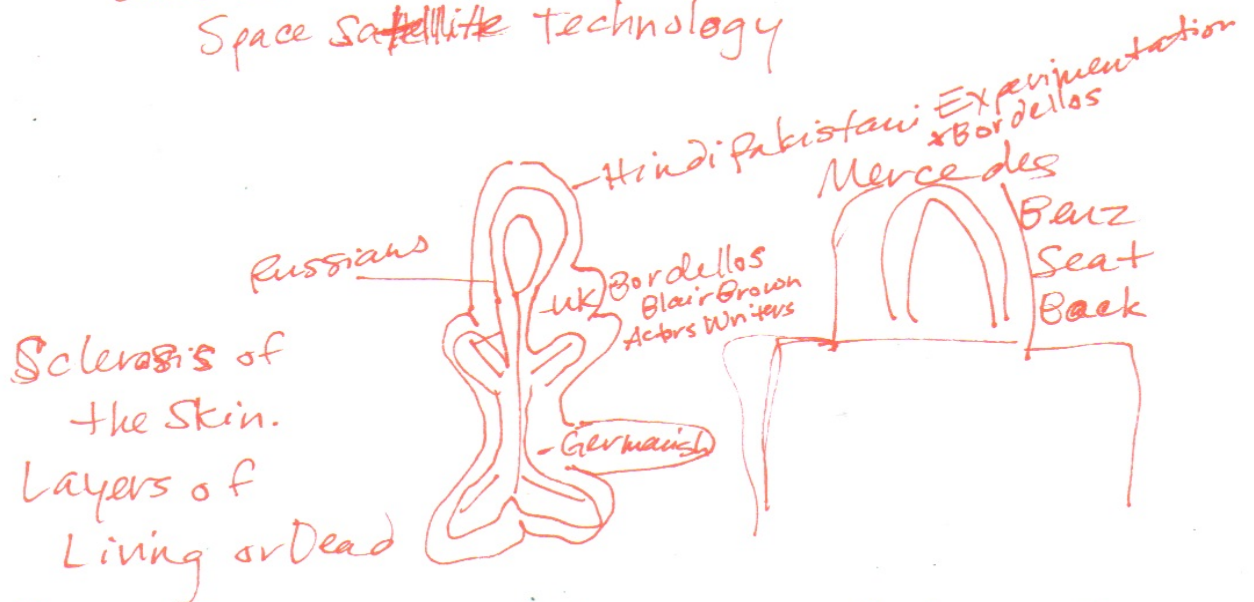 Space Satellite Technology
Hindi Pakistani Experimentation
*Bordellos
Mercedes
Benz
Seat
Back
Russians
UK
Bordellos
Blair Brown
Actors Writers
Sclerosis of
the Skin.
Layers of
Living or Dead
- Germanish